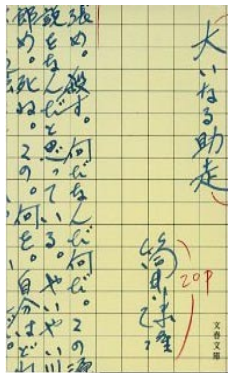 大いなる助走
筒井康隆
20P
文春文庫
張め。殺す。何だなんだ何だ。この
説をなんだと思っている。やいやい川
郎め。死ね。この。何を。自分はどれ